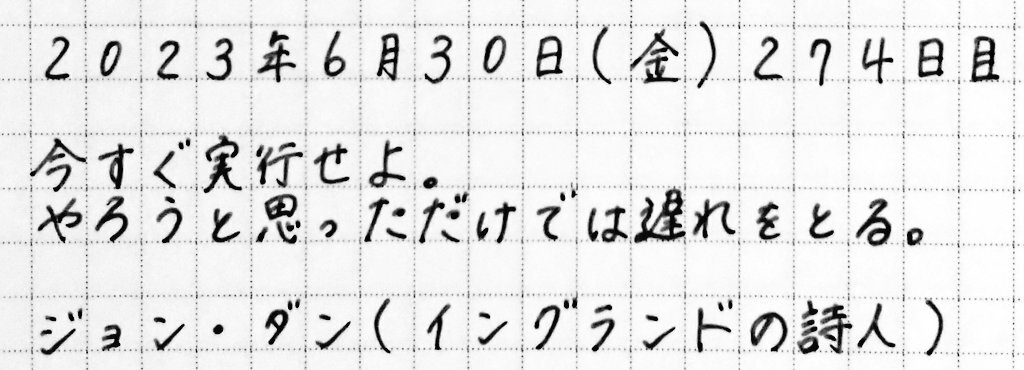 2023年6月30日(金)274日目
今すぐ実行せよ。
やろうと思っただけでは遅れをとる。
ジョン・ダン(イングランドの詩人)